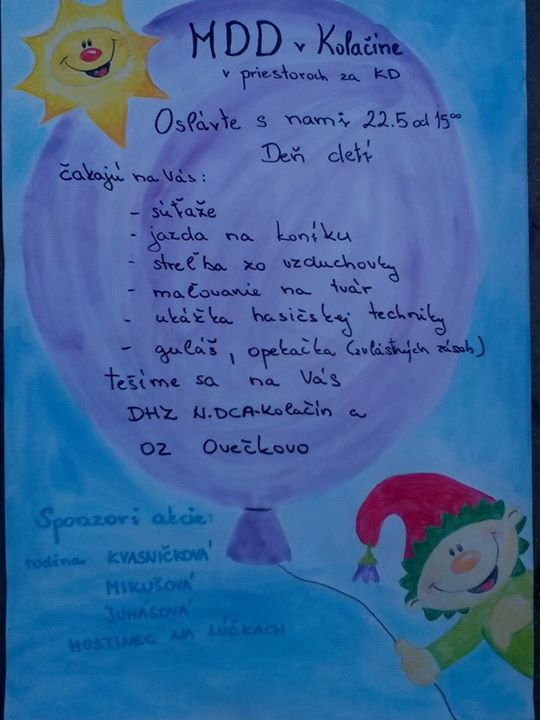 MDD v Kolačíne
v priestoroch za KD
Oslávte s nami 22.5 od 15ºº
Deň detí
čakajú na Vás:
- súťaže
- jazda na koníku
- streľba zo vzduchovky
- maľovanie na tvár
- ukážka hasičskej techniky
- guláš, opekačka (zvlastných zásob)
tešíme sa na Vás
DHZ N.DCA-Kolačín a
OZ Ovečkovo
Sponzori akcie:
rodina KVASNIČKOVÁ
MIKUŠOVÁ
JUHÁSOVÁ
HOSTINEC NA LÚČKACH